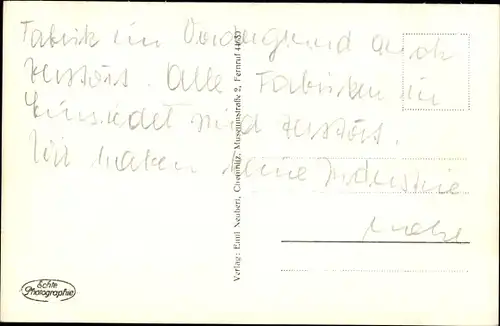 Fabrik im Vordergrund auch
zerstört. Alle Fabriken in
Einsiedel sind zerstört.
Wir haben keine Industrie
mehr
Verlag: Emil Neubert, Chemnitz, Museumstraße 2, Fernruf 41637
Echte
Photographie